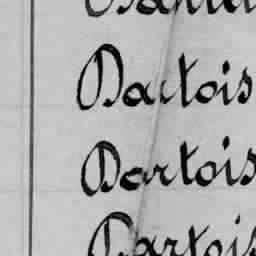 Dartois
Dartois
Dartois